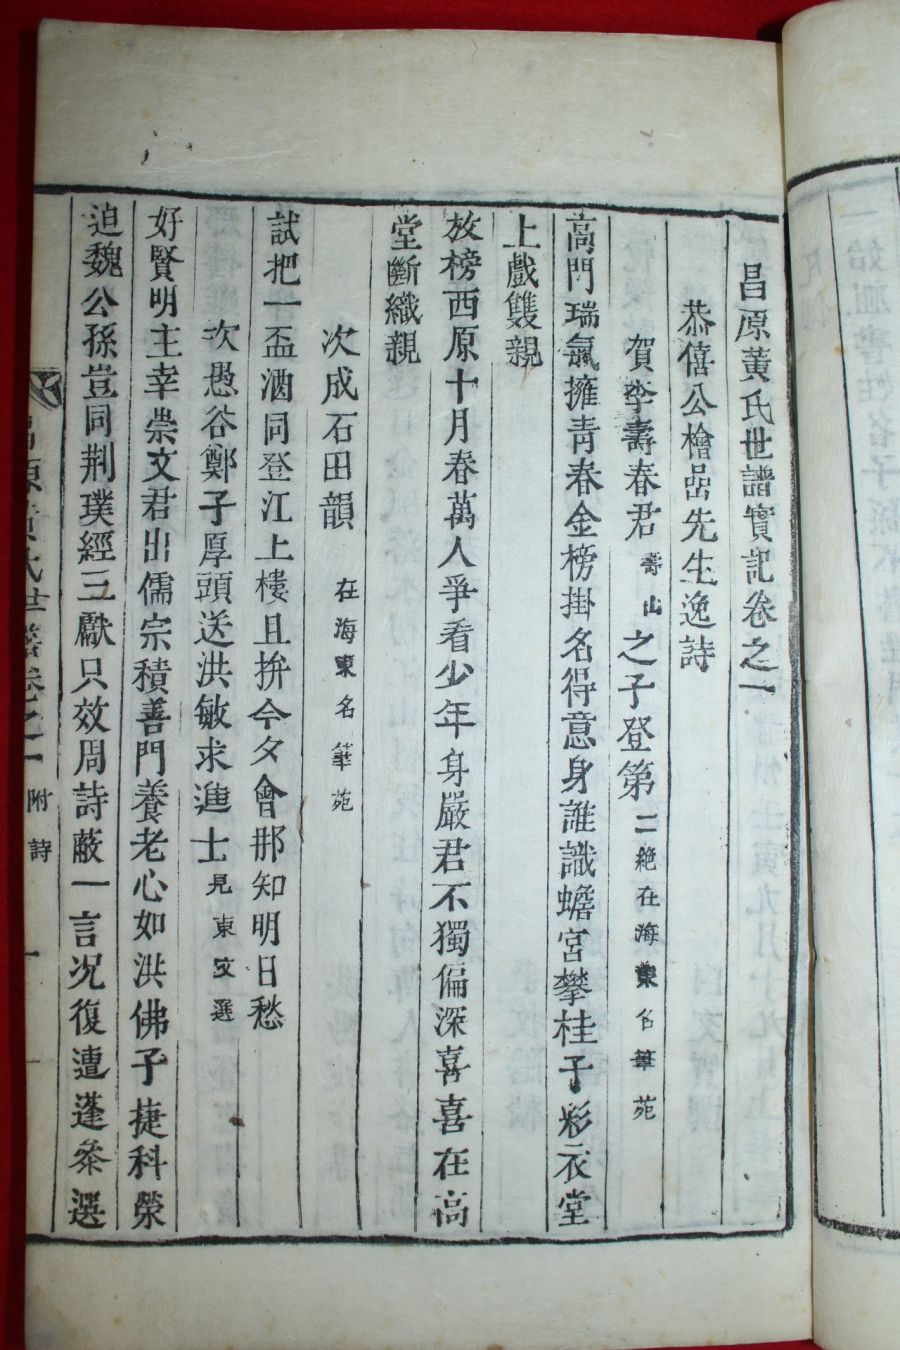 昌原黃氏世譜實記卷之一
恭僖公檜嵒先生逸詩
賀李壽春君壽山之子登第二絶在海東名筆苑
高門瑞氣擁靑春金榜掛名得意身誰識蟾宮攀桂子彩衣堂
上戲雙親
放榜西原十月春萬人爭看少年身嚴君不獨偏深喜喜在高
堂斷織親
次成石田韻在海東名筆苑
試把一盃酒同登江上樓且拚今夕會那知明日愁
次愚谷鄭子厚頭送洪敏求進士見東文選
好賢明主幸崇文君出儒宗積善門養老心如洪佛子捷科榮
迫魏公孫豈同荆璞經三獻只效周詩蔽一言况復遭逢叅選
昌原黃氏世譜卷之一 附詩 一